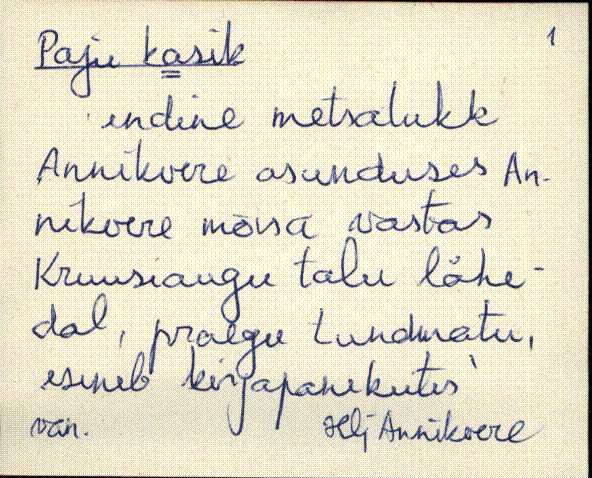 Paju kasik 1
endine metsatukk
Annikvere asunduses An-
nikvere mõisa vastas
Kruusiaugu talu lähe-
dal, praegu tundmatu,
esineb kirjapanekutes
van. Hlj Annikvere